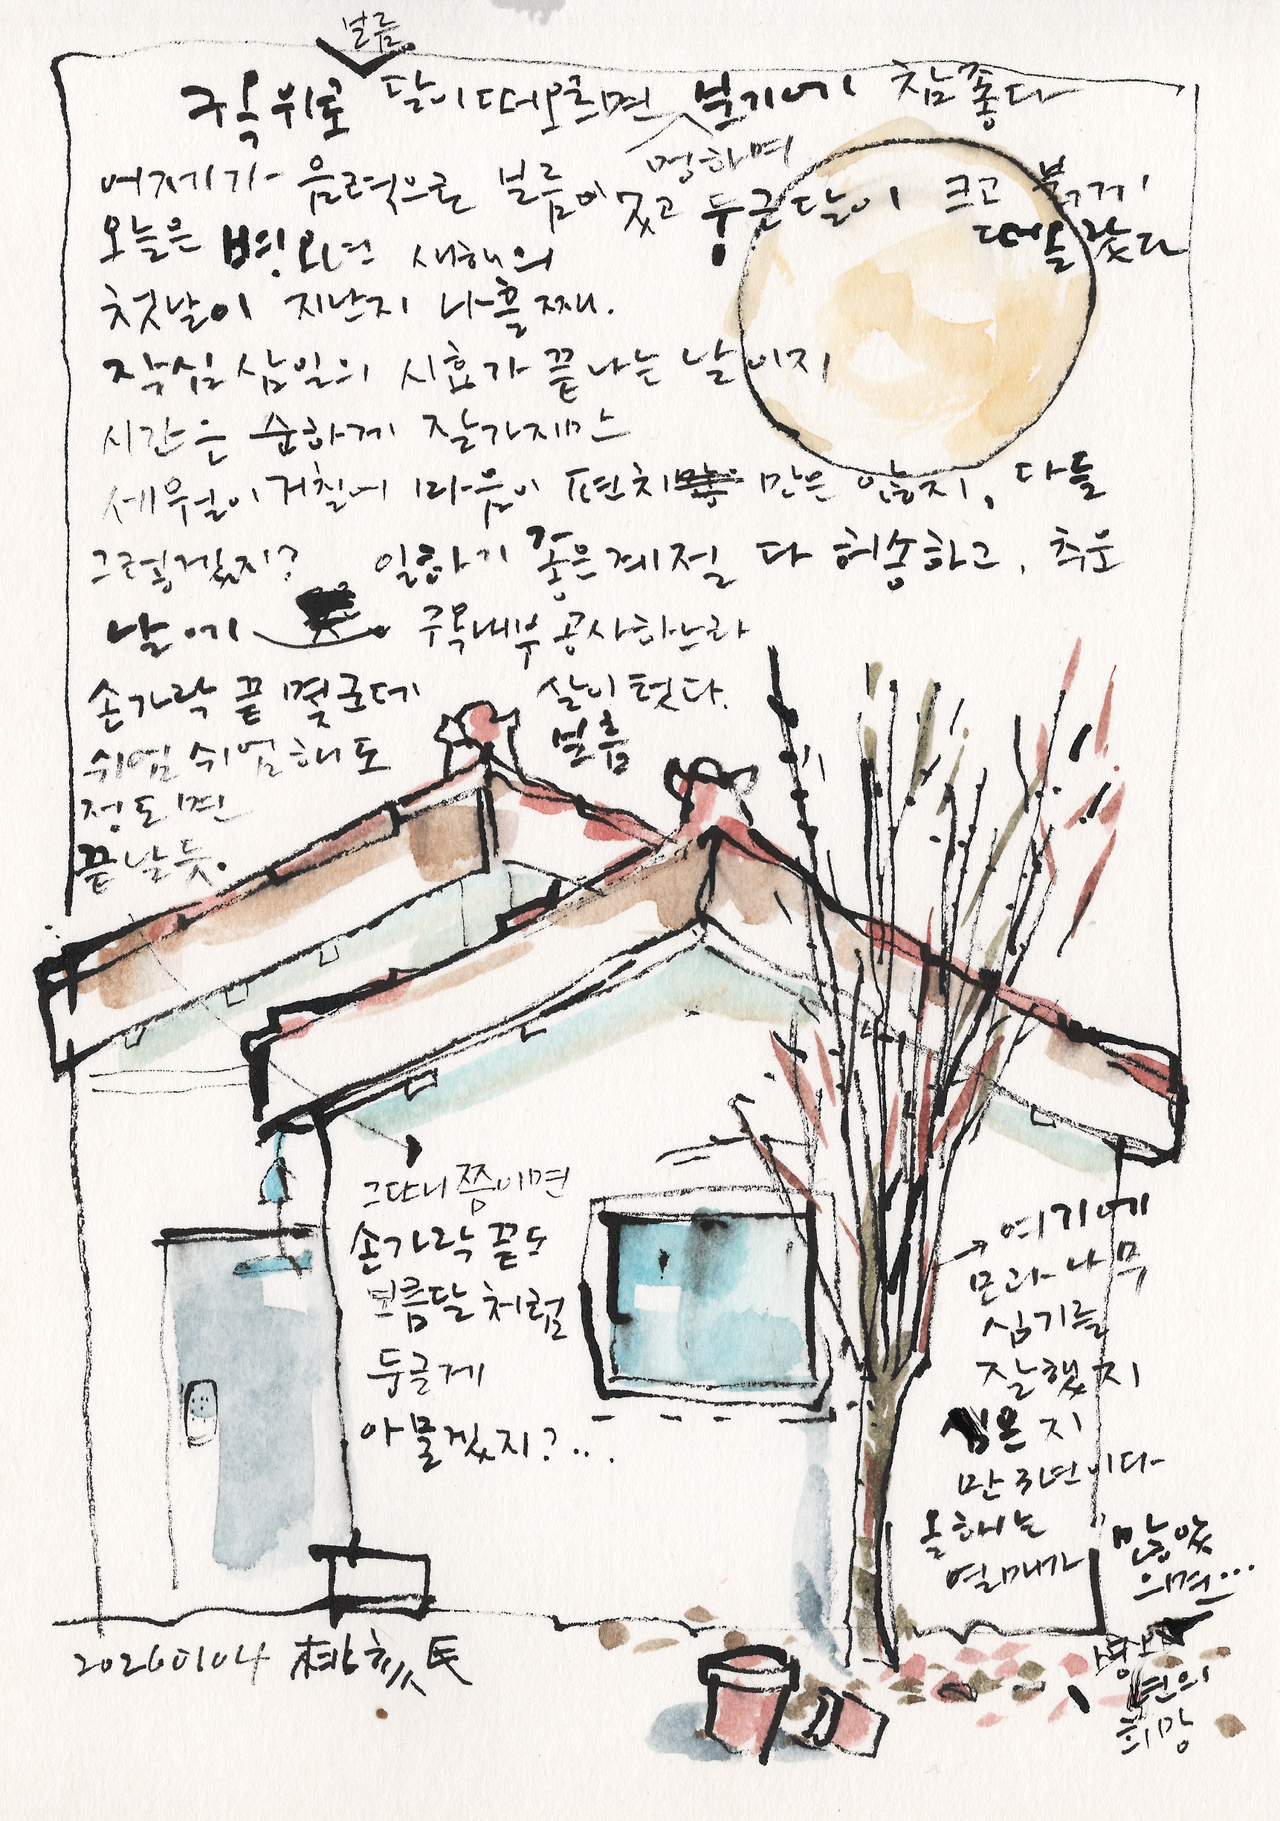 보름
구옥 위로 달이 떠오르면 보기에 참 좋다
멍하며
어제가 음력으로 보름이었고 둥근달이 크고 붉게
떠올랐다
오늘은 병오년 새해의
첫날이 지난지 나흘째.
작심삼일의 시효가 끝나는 날이지
시간은 순하게 잘가지만
세월이 거칠어 마음이 편치 만은 않지, 다들
그렇겠지? 일하기 좋은 계절 다 허송하고, 추운
날에 주옥내부공사하느라
손가락 끝 몇군데 살이 텄다.
쉬엄쉬엄해도 보름
정도면
끝날듯.
그다니쯤이면
손가락 끝도
보름달처럼
둥글게
아물겠지?...
여기에
모과나무
심기를
잘했지
심은지
만 3년이다
올해는
열매가 많았
으면...
년의
희망
20260104